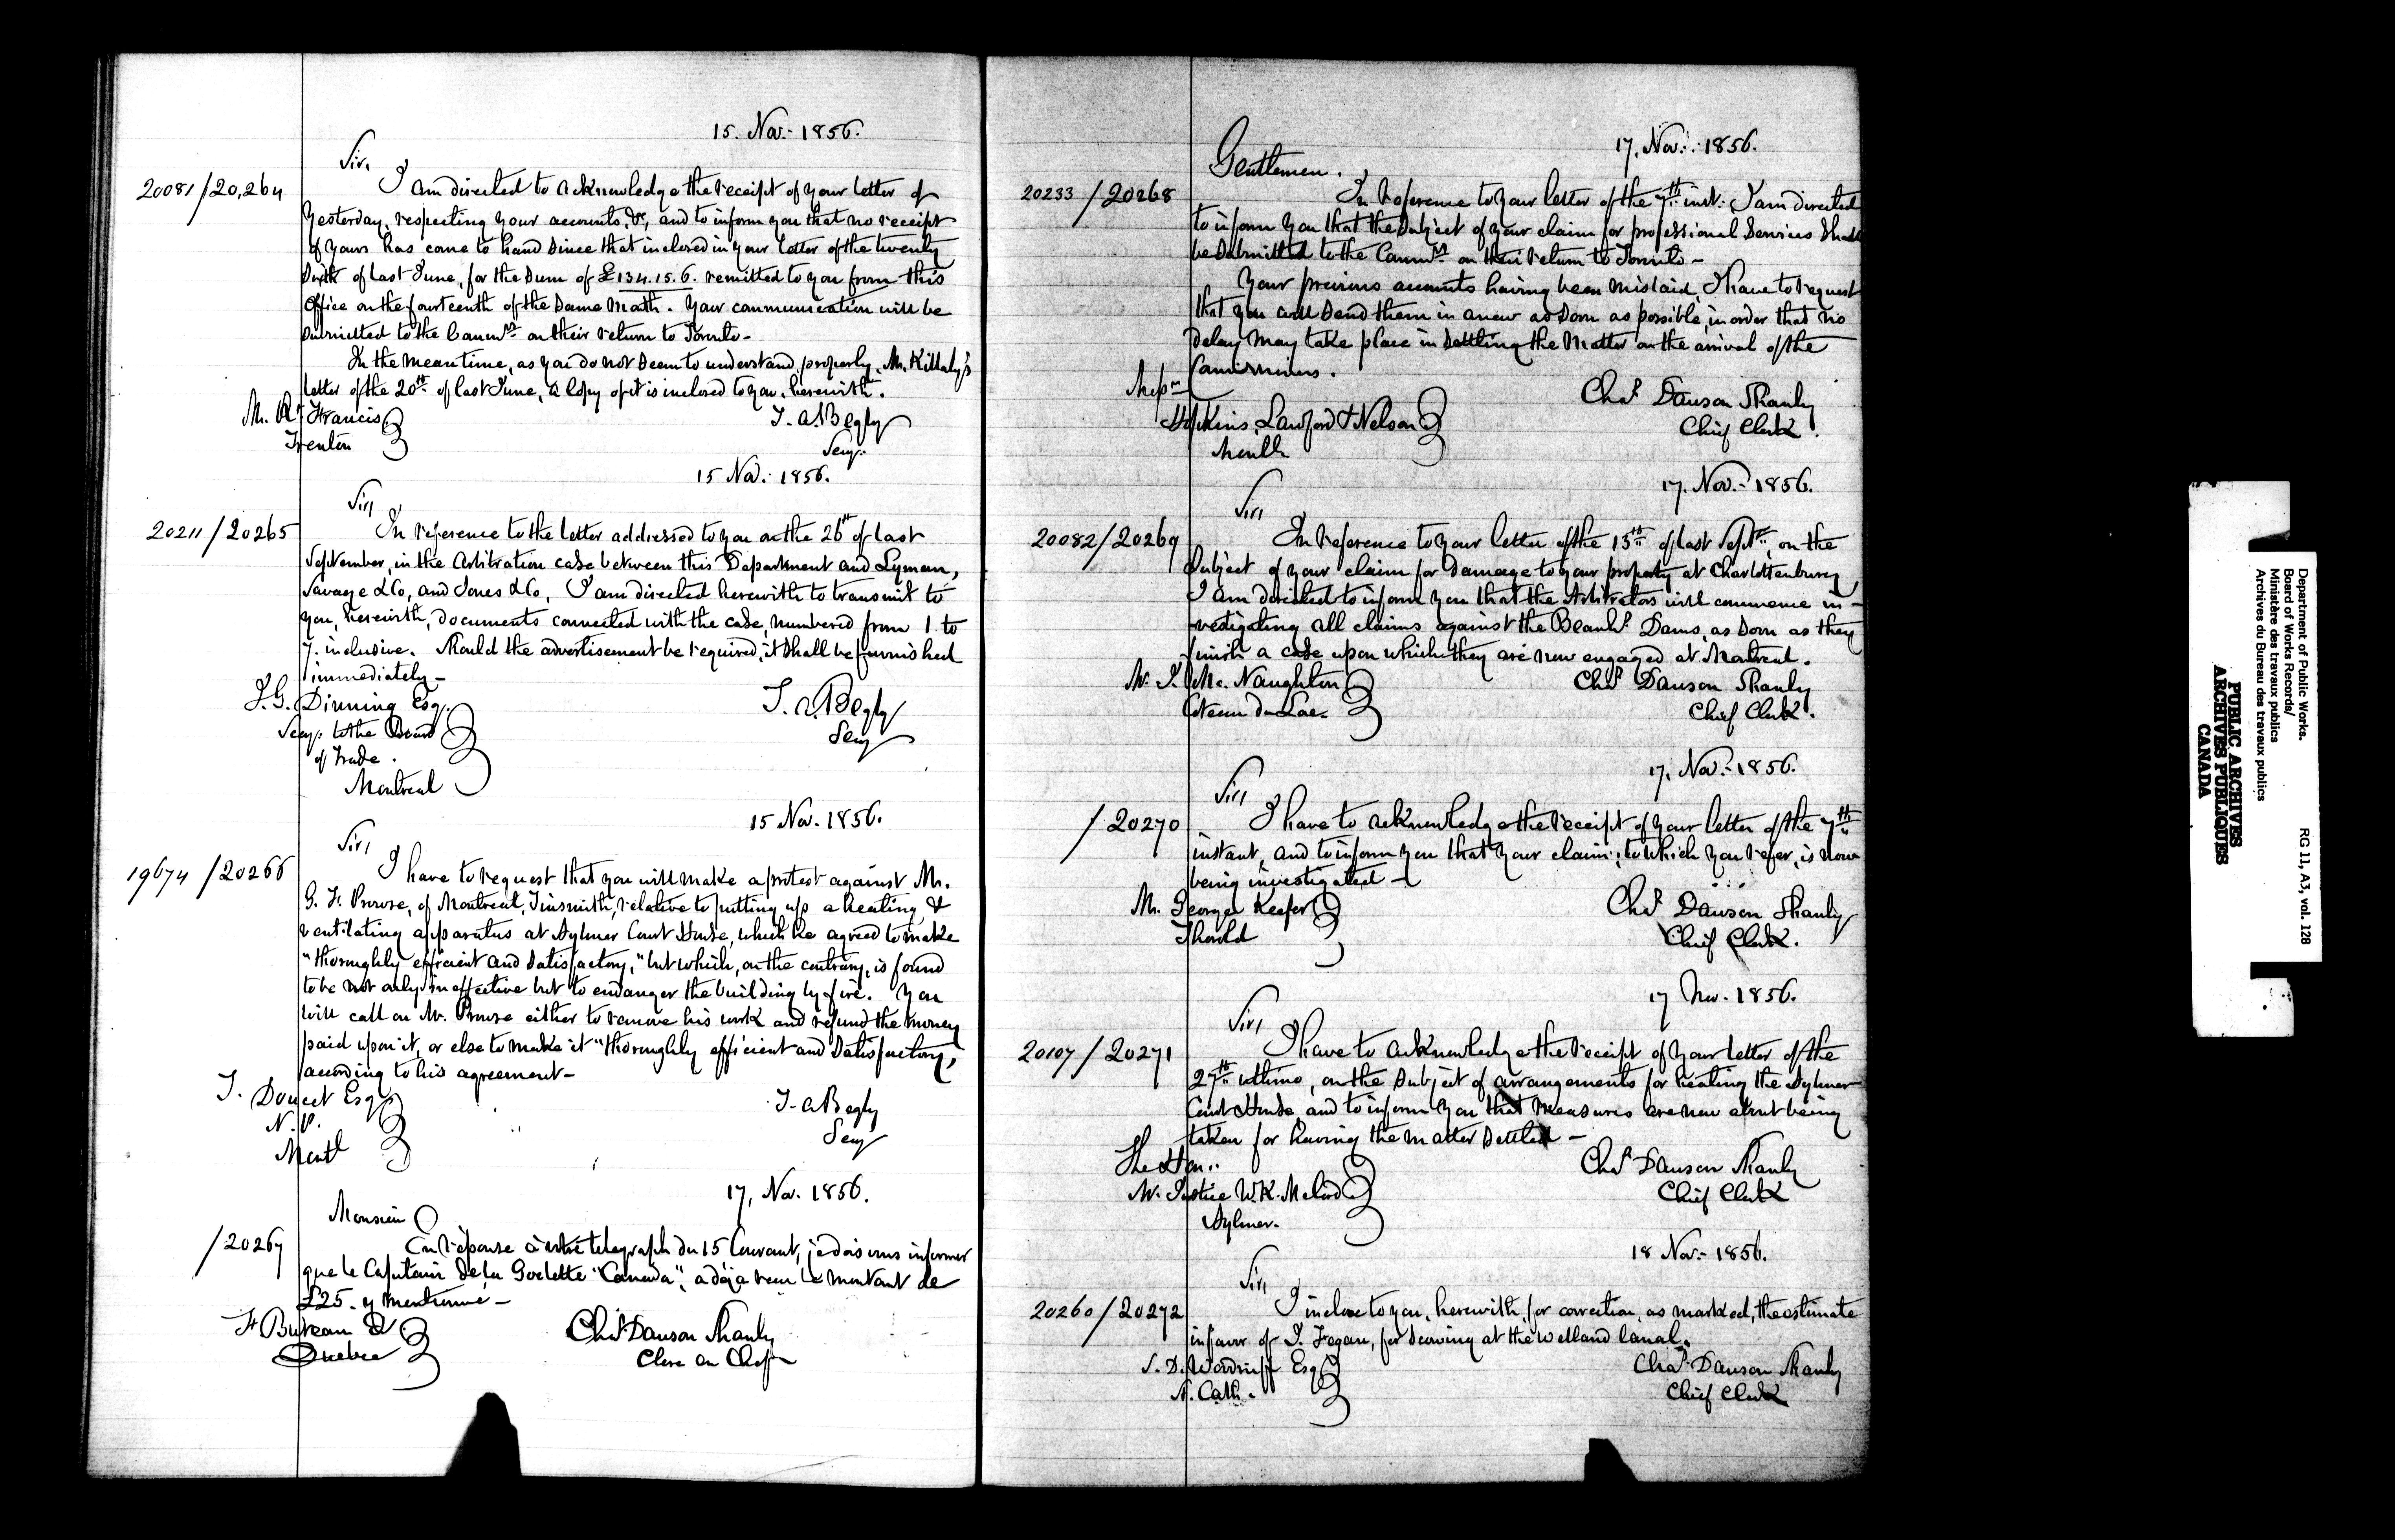 15. Nov:- 1856.
Sir,
20081/20,264
I am directed to acknowledge the receipt of your letter of
yesterday, respecting your accounts, &c, and to inform you that no receipt
of yours has come to hand since that inclosed in your letter of the twenty
sixth of last June, for the sum of £134.15.6. remitted to you from this
Office on the fourteenth of the same month. Your communication will be
submitted to the Commrs on their return to Toronto -
In the meantime, as you do not seem to understand, properly, Mr. Killaly's
letter of the 20th of last June, a copy of it is inclosed to you, herewith.
Mr. Rt Francis
Trenton
T. A. Begly
Secy.
15 Nov: 1856.
Sir,
20211/20265
In reference to the letter addressed to you on the 26th of last
September, in the Arbitration case between this Department and Lyman,
Savage & Co, and Jones & Co, I am directed herewith to transmit to
you, herewith, documents connected with the case, numbered from 1. to
7. inclusive. Should the advertisement be required, it shall be furnished
immediately -
J. G. Dinning Esq.
Secy: to the Board
of Trade.
Montreal
T. A. Begly
Secy
15 Nov. 1856.
Sir,
19674/20266
I have to request that you will make a protest against Mr.
G. F. Prowse, of Montreal, Tinsmith, relative to putting up a heating &
ventilating apparatus at Aylmer Court House, which he agreed to make
"thoroughly efficient and satisfactory," but which, on the contrary, is found
to be not only ineffective but to endanger the building by fire. You
will call on Mr. Prowse either to remove his work and refund the money
paid upon it, or else to make it "thoroughly efficient and satisfactory,
according to his agreement -
T. Doucet Esq
N. P.
Montl
T. A. Begly
Secy
17, Nov. 1856.
Monsieur
/20267
En réponse à votre telegraph du 15 Courant, je dois vous informer
que le Capitain de la Goelette "Canada", a déja reçu le montant de
£25. y mentionné -
Bureau
Quebec
Chas Dawson Shanly
Clerc en Chef
17, Nov:. 1856.
Gentlemen.
20233/20268
In reference to your letter of the 7th inst: I am directed
to inform you that the subject of your claim for professional services shall
be submitted to the Commrs on their return to Toronto -
Your previous accounts having been mislaid, I have to request
that you will send them in anew as soon as possible, in order that no
delay may take place in settling the matter on the arrival of the
Commissioners.
Messrs
Hopkins, Lawford & Nelson
Montl
Chas Dawson Shanly
Chief Clerk.
17. Nov:- 1856.
Sir,
20082/20269
In reference to your letter of the 15th of last Septr, on the
subject of your claim for damage to your property at Charlottenburg,
I am directed to inform you that the Arbitrators will commence in-
vestigating all claims against the Beauhs Dams, as soon as they
finish a case upon which they are now engaged at Montreal.
Mr. J. Mc. Naughton
Coteau du Lac.
Chas Dawson Shanly
Chief Clerk.
17, Nov:- 1856.
Sir,
/20270
I have to acknowledge the receipt of your letter of the 7th
instant, and to inform you that your claim, to which you refer, is now
being investigated -
Mr. George Keefer
Thorold
Chas Dawson Shanly
Chief Clerk.
17 Nov. 1856.
Sir,
20107/20271
I have to acknowledge the receipt of your letter of the
27th ultimo, on the subject of arrangements for heating the Aylmer
Court House, and to inform you that measures are now about being
taken for having the matter settled -
The Hon..
Mr. Justice W. K. McCord
Aylmer.
Chas Dawson Shanly
Chief Clerk
18 Nov:- 1856.
Sir,
20260/20272
I inclose to you, herewith, for correction, as marked, the estimate
in favor of J. Fegan, for scowing at the Welland Canal.
S. D. Woodruff Esq
St. Cath.
Chas Dawson Shanly
Chief Clerk
Department of Public Works.
Board of Works Records/
Ministère des travaux publics
Archives du Bureau des travaux publics
RG 11, A3, vol. 128
PUBLIC ARCHIVES
ARCHIVES PUBLIQUES
CANADA